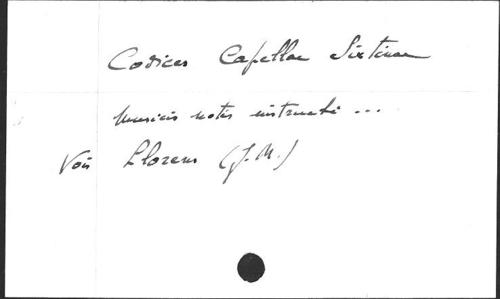 Codices Capellae Sixtinae
musicis notis instructi ...
Voir Llorens (J.M.)